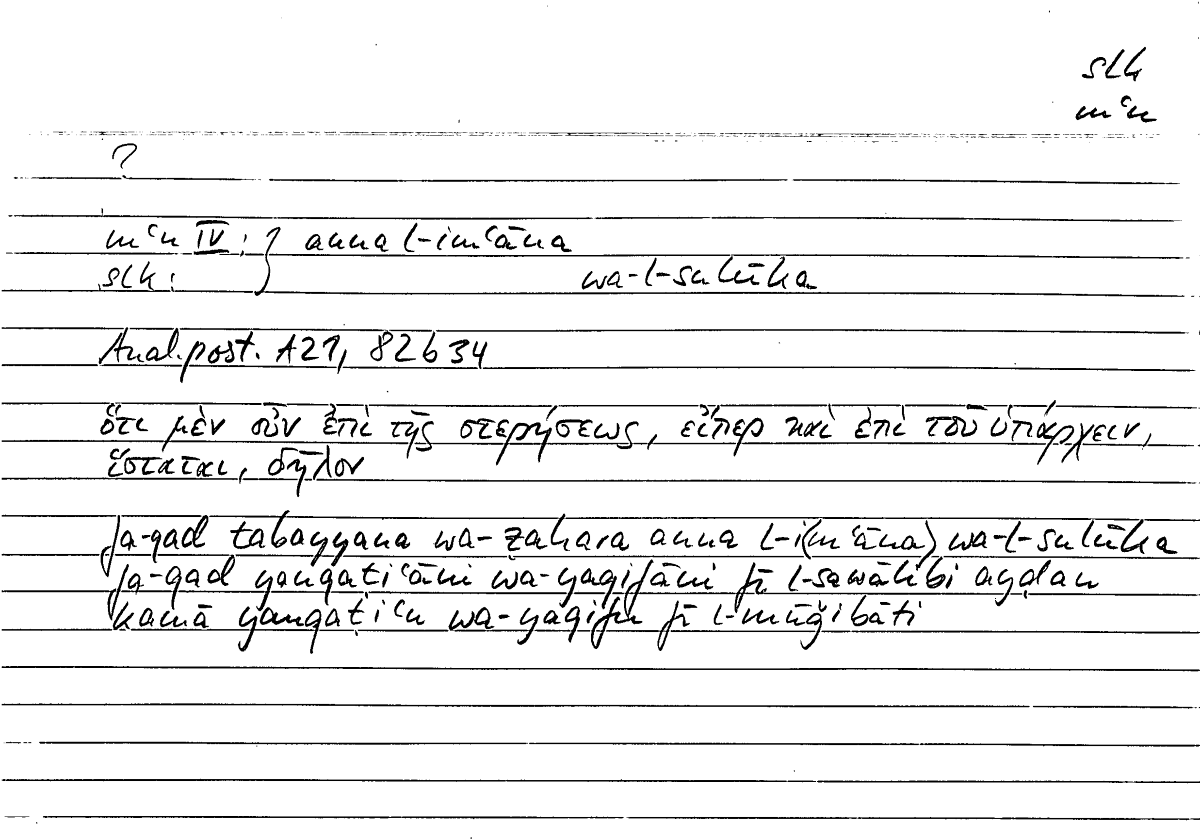 slk
mʿn
?
mʿn IV : } anna l-imʿāna
slk : wa-l-sulūka
Anal.post. A21, 82b34
ὅτι μὲν οὖν ἐπὶ τῆς στερήσεως, εἴπερ καὶ ἐπὶ τοῦ ὑπάρχειν,
ἵσταται, δῆλον
fa-qad tabayyana wa-ẓahara anna l-i(mʿāna) wa-l-sulūka
fa-qad yanqaṭiʿāni wa-yaqifāni fī l-sawālibi ayḍan
kamā yanqaṭiʿu wa-yaqifu fī l-mūǧibāti